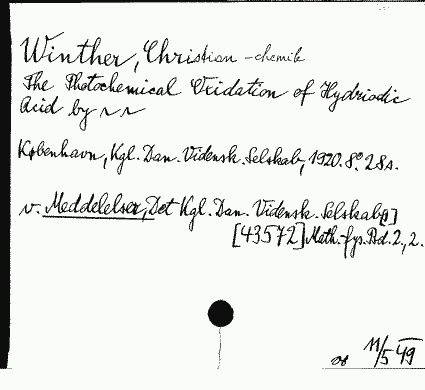 Winther, Christian - chemik
The Photochemical Oxidation of Hydriodic
Acid by ~ ~
København, Kgl. Dan. Vidensk. Selskab, 1920. 8° 28 s.
v. Meddelelser, Det Kgl. Dan. Vidensk. Selskab[]
[43572] Math.-fys. Bd. 2., 2.
11/5 49